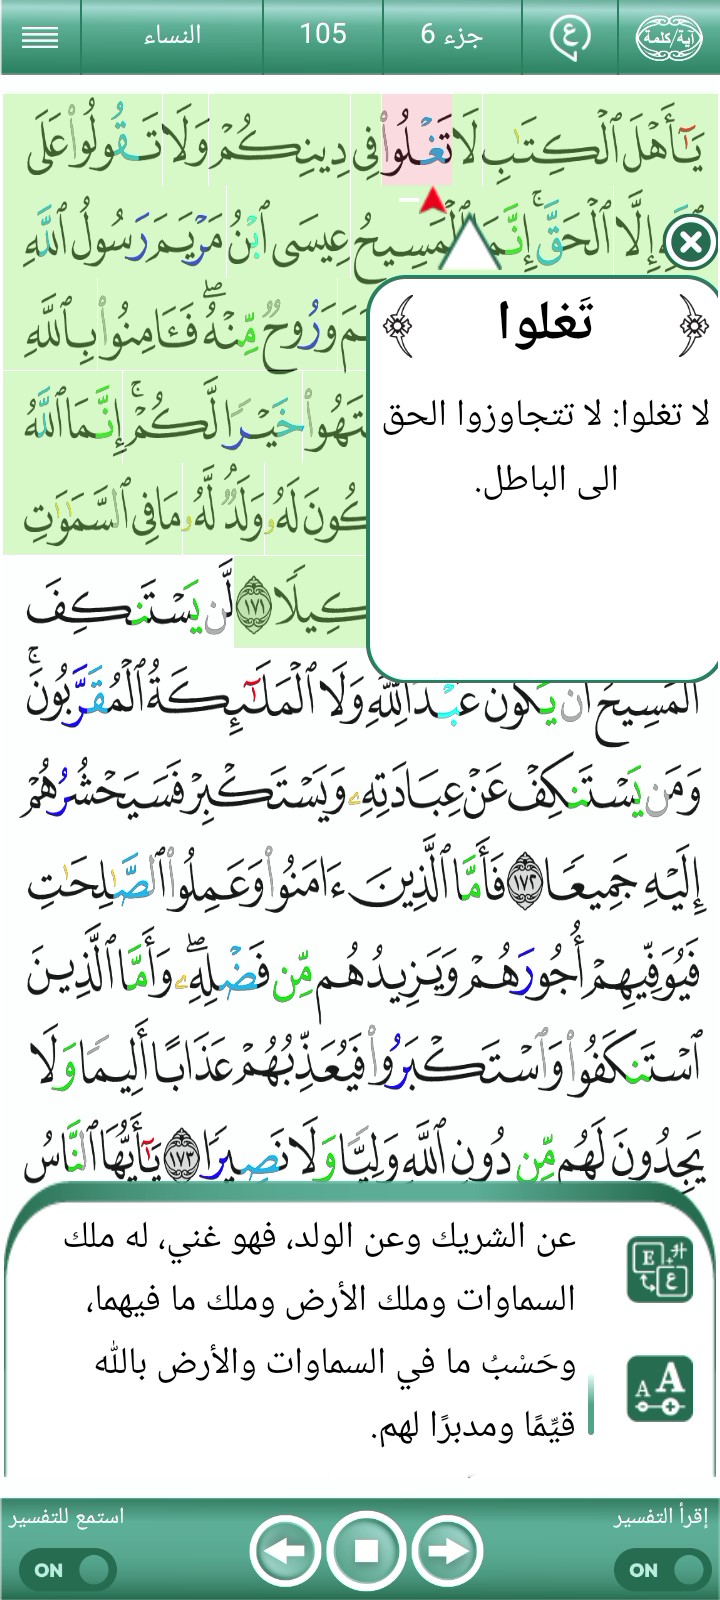 آية/كلمة
ع
جزء 6
105
النساء
يَـٰٓأَهْلَ ٱلْكِتَـٰبِ لَا تَغْلُوا۟ فِى دِينِكُمْ وَلَا تَقُولُوا۟ عَلَى
إِلَّا ٱلْحَقَّ ۚ إِنَّمَا ٱلْمَسِيحُ عِيسَى ٱبْنُ مَرْيَمَ رَسُولُ ٱللَّهِ
وَرُوحٌ مِّنْهُ ۖ فَـَٔامِنُوا۟ بِٱللَّهِ
خَيْرًا لَّكُمْ ۚ إِنَّمَا ٱللَّهُ
لَهُۥ وَلَدٌ ۘ لَّهُۥ مَا فِى ٱلسَّمَـٰوَٰتِ
١٧١ لَّن يَسْتَنكِفَ
تَغلوا
لا تغلوا: لا تتجاوزوا الحق
الى الباطل.
ٱلْمَسِيحُ أَن يَكُونَ عَبْدًا لِّلَّهِ وَلَا ٱلْمَلَـٰٓئِكَةُ ٱلْمُقَرَّبُونَ ۚ
وَمَن يَسْتَنكِفْ عَنْ عِبَادَتِهِۦ وَيَسْتَكْبِرْ فَسَيَحْشُرُهُمْ
إِلَيْهِ جَمِيعًا ١٧٢ فَأَمَّا ٱلَّذِينَ ءَامَنُوا۟ وَعَمِلُوا۟ ٱلصَّـٰلِحَـٰتِ
فَيُوَفِّيهِمْ أُجُورَهُمْ وَيَزِيدُهُم مِّن فَضْلِهِۦ ۖ وَأَمَّا ٱلَّذِينَ
ٱسْتَنكَفُوا۟ وَٱسْتَكْبَرُوا۟ فَيُعَذِّبُهُمْ عَذَابًا أَلِيمًا وَلَا
يَجِدُونَ لَهُم مِّن دُونِ ٱللَّهِ وَلِيًّا وَلَا نَصِيرًا ١٧٣ يَـٰٓأَيُّهَا ٱلنَّاسُ
عن الشريك وعن الولد، فهو غني، له ملك
السماوات وملك الأرض وملك ما فيهما،
وحَسْبُ ما في السماوات والأرض بالله
قيِّمًا ومدبرًا لهم.
إقرأ التفسير
استمع للتفسير
ON
ON